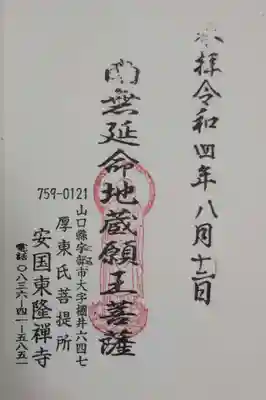 奉拝令和四年八月十二日
南無延命地蔵願王菩薩
759-0121
山口県宇部市大字棚井六四七
厚東氏菩提所
安国東隆禅寺
電話〇八三六-四一-五八五一